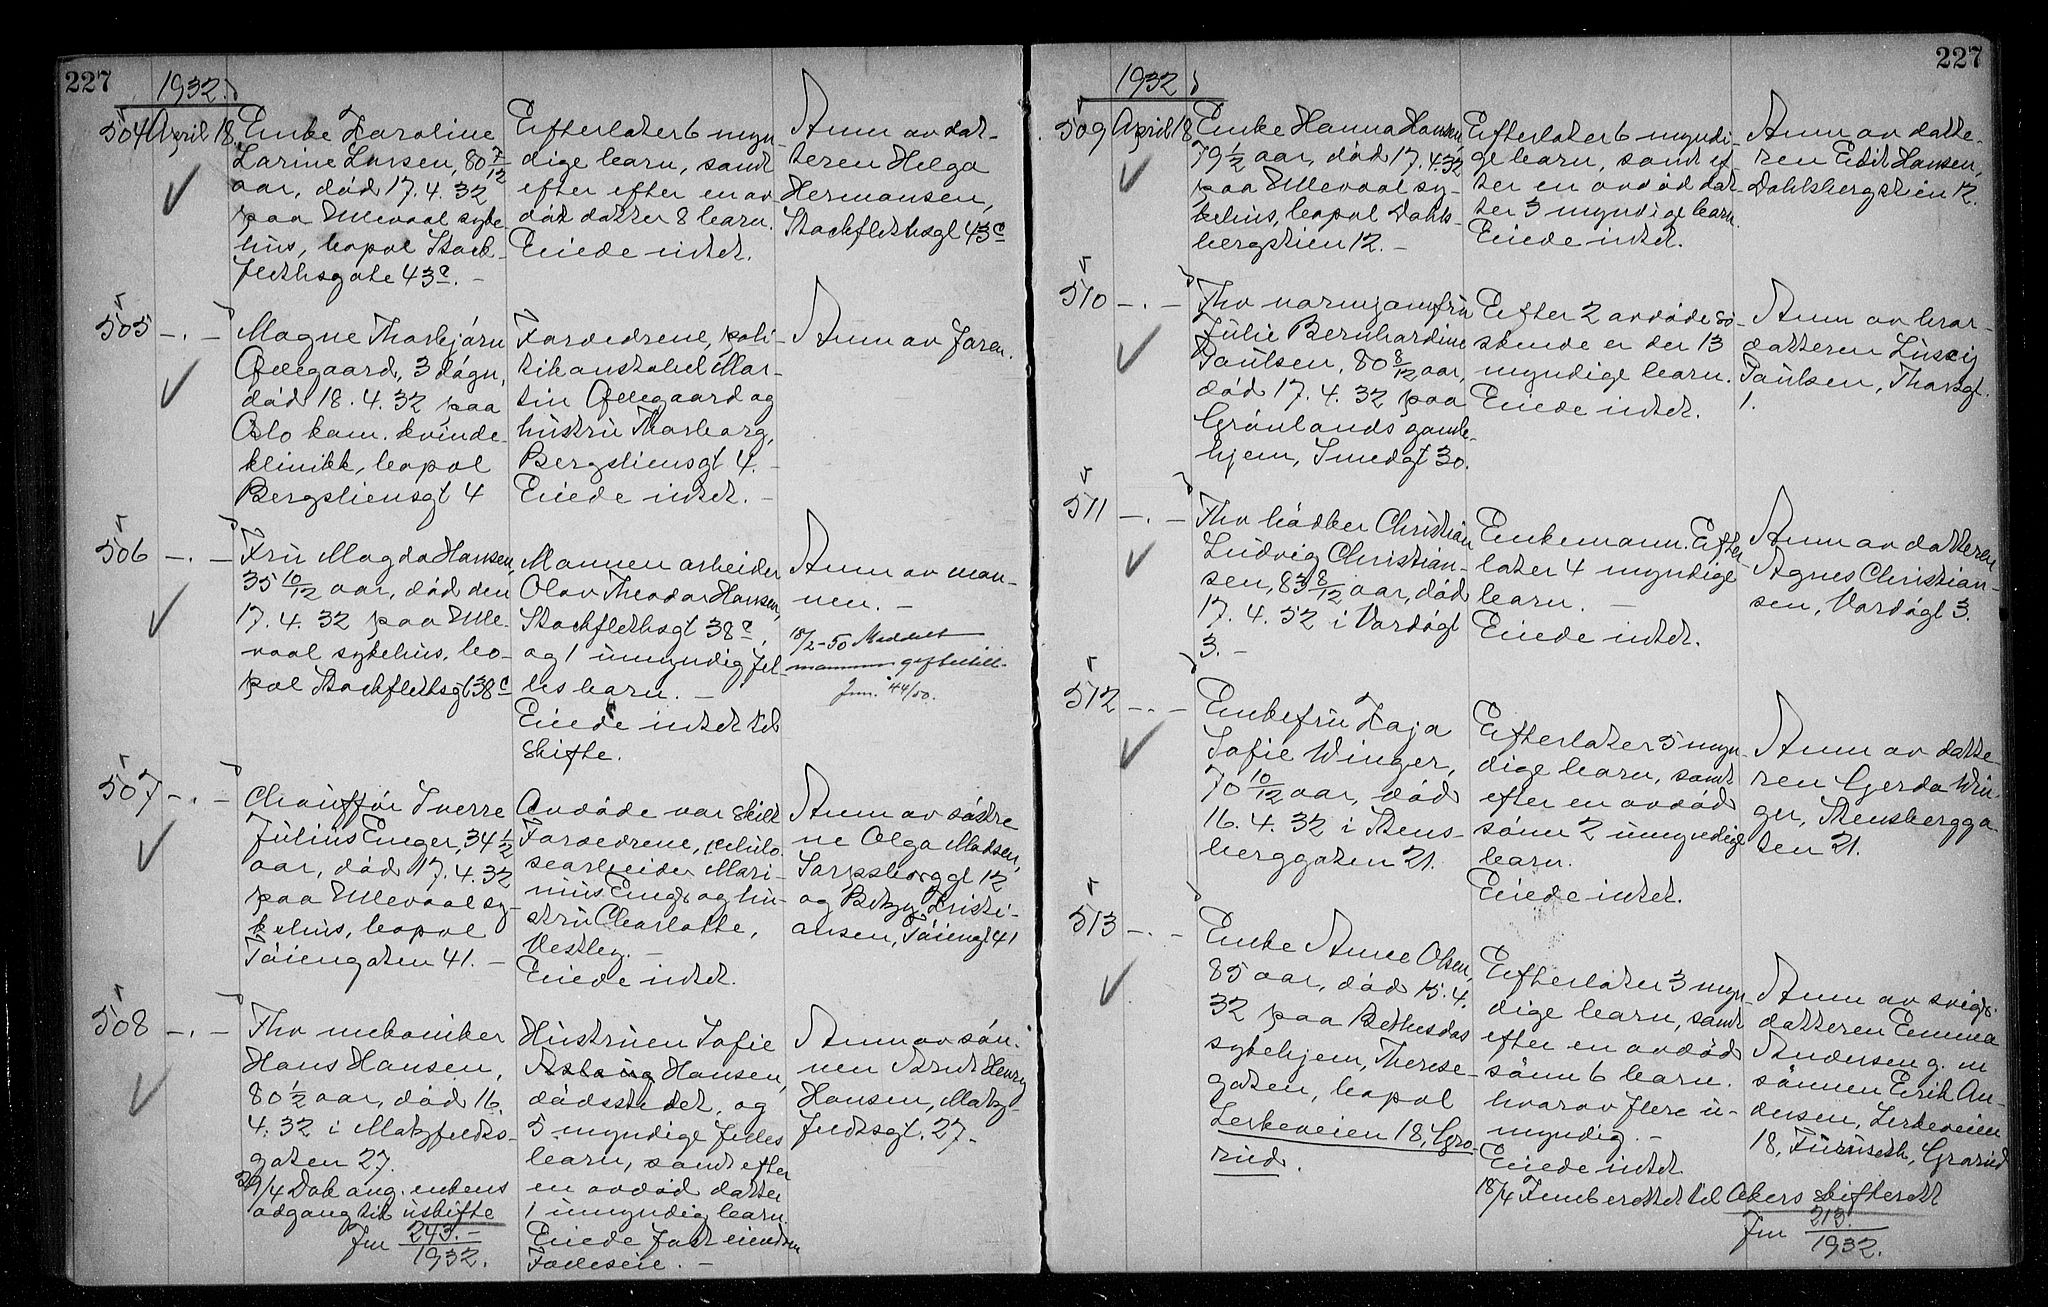 227
1932.
504 April 18. Enke Karoline
Larine Larsen, 80 7/12
aar, død 17. 4. 32
paa Ullevaal syke-
hus, bopæl Stock-
flethsgate 43c. -
Efterlater 6 myn-
dige barn, samt
efter efter en av-
død datter 8 barn.
Eiede intet.
Anm av dat-
teren Helga
Hermansen,
Stockflethsgt 43c
505 -.- Magne Thorbjørn
Ødegaard, 3 døgn,
død 18. 4. 32 paa
Oslo kom. kvinde-
klinikk, bopæl
Bergsliensgt 4
Forældrene, poli-
tikonstabel Mar-
tin Ødegaard og
hustru Thorborg,
Bergsliensgt 4. -
Eiede intet. -
Anm av faren.
506 -.- Fru Magda Hansen,
35 10/12 aar, død den
17. 4. 32 paa Ulle-
vaal sykehus, bo-
pæl Stockflethsgt 38c
Mannen arbeider
Olav Theodor Hansen,
Stockflethsgt 38c,
og 1 umyndig fel-
les barn. -
Eiede intet til
skifte.
Anm av man-
nen. -
18/2-50 Meddelt
mannen giftetill.
Jnr. 44/50.
507 -.- Chauffør Sverre
Julius Enger, 34 1/2
aar, død 17. 4. 32
paa Ullevaal sy-
kehus, bopæl
Tøiengaten 41. -
Avdøde var skilt
Forældrene, cellulo-
searbeider Mari-
nius Enger og hu-
stru Charlotte,
Vestby. -
Eiede intet.
Anm av søstre
ne Olga Madsen,
Sarpsborggt 12
og Betzy Kristi-
ansen, Tøiengt 41
508 -.- Fhv mekaniker
Hans Hansen,
80 1/2 aar, død 16.
4. 32 i Matzfeldts-
gaten 27.
29/4 Dok ang. enkens
adgang til uskifte
Jnr 243.-/1932.
Hustruen Sofie
Aslaug Hansen,
dødsstedet, og
5 myndige felles
barn, samt efter
en avdød datter
1 umyndig barn.
Eiede fast eiendom
Fælleseie. -
Anm av søn-
nen Arnt Henry
Hansen, Matz-
feldtsgt. 27.
227
1932
509 April 18 Enke Hanna Hansen,
79 1/2 aar, død 17. 4. 32
paa Ullevaal sy-
kehus, bopæl Dahls-
bergstien 12. -
Efterlater 6 myndi-
ge barn, samt ef-
ter en avdød dat-
ter 3 myndige barn.
Eiede intet.
Anm av datte-
ren Edit Hansen,
Dahlsbergstien 12.
510 -.- Fhv varmjomfru
Julie Bernhardine
Paulsen, 80 8/12 aar,
død 17. 4. 32 paa
Grønlands gamle-
hjem, Smedgt 30.
Efter 2 avdøde sø-
skende er der 13
myndige barn.
Eiede intet.
Anm av bror-
datteren Lussy
Paulsen, Thorsgt.
1.
511 -.- Fhv bødker Christian
Ludvig Christian-
sen, 83 8/12 aar, død
17. 4. 32 i Vardøgt
3. -
Enkemann. Efter
later 4 myndige
barn. -
Eiede intet.
Anm av datteren
Agnes Christian-
sen, Vardøgt 3.
512 -.- Enkefru Kaja
Sofie Winger,
70 10/12 aar, død
16. 4. 32 i Stens-
berggaten 21.
Efterlater 5 myn-
dige barn, samt
efter en avdød
sønn 2 umyndige
barn.
Eiede intet.
Anm av datte
ren Gerda Win-
ger, Stensbergga-
ten 21.
513 -.- Enke Anne Olsen,
85 aar, død 15. 4.
32 paa Bethesdas
sykehjem, Therese-
gaten, bopæl
Lerkeveien 18, Gro-
rud.
Efterlater 3 myn-
dige barn, samt
efter en avdød
sønn 6 barn.
hvorav flere u-
myndig. -
Eiede intet
Anm av sviger-
datteren Emma
Andersen g. m
sønnen Erik An-
dersen, Lerkeveien
18, Furuseth, Grorud
18/4 Innberettet til Akers skifterett
Jnr 213./1932.